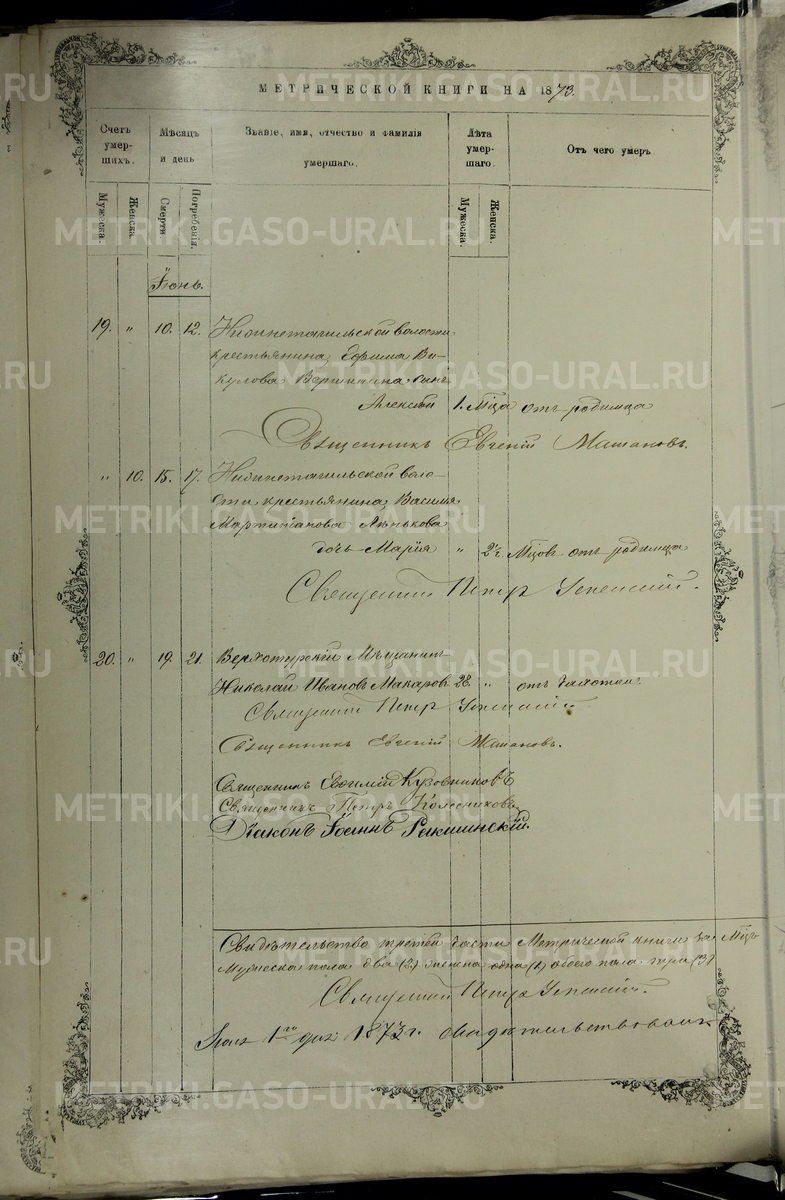 МЕТРИЧЕСКОЙ КНИГИ НА 1873.
Счетъ умер-шихъ.
Мѣсяцъ и день
Званіе, имя, отчество и фамилія умершаго.
Лѣта умер-шаго.
Отъ чего умеръ.
Мужеска.
Женска.
Смерти
Погребенія.
Мужеска.
Женска.
Іюнь.
19. " 10. 12. Нижнетагильской волости
крестьянина, Ефима Ви-
кулова Вершинина сынъ
Алексѣй 1. Мѣца отъ родимца
Священникъ Евгеній
" 10. 15. 17. Нижнетагильской воло-
сти, крестьянина, Василья
дочь Марія " 2½ Мѣцовъ отъ родимца
Священникъ Петръ Успенскій.
20. " 19. 21. Верхотурскій Мѣщанинъ
Николай Ивановъ Макаровъ 28. " отъ чахотки.
Священникъ Петръ Успенскій.
Священникъ Евгеній
Священникъ Евѳимій Кузовниковъ
Священникъ Петръ Колесниковъ
Діаконъ Іоаннъ
Свидѣтельство третей части Метрической книги за Мѣцъ
Мужеска пола два (2) женска одна (1) обоего пола три (3)
Священникъ Петръ Успенскій.
1го дня 1873 г. свидѣтельствовалъ
METRIKI.GASO-URAL.RU